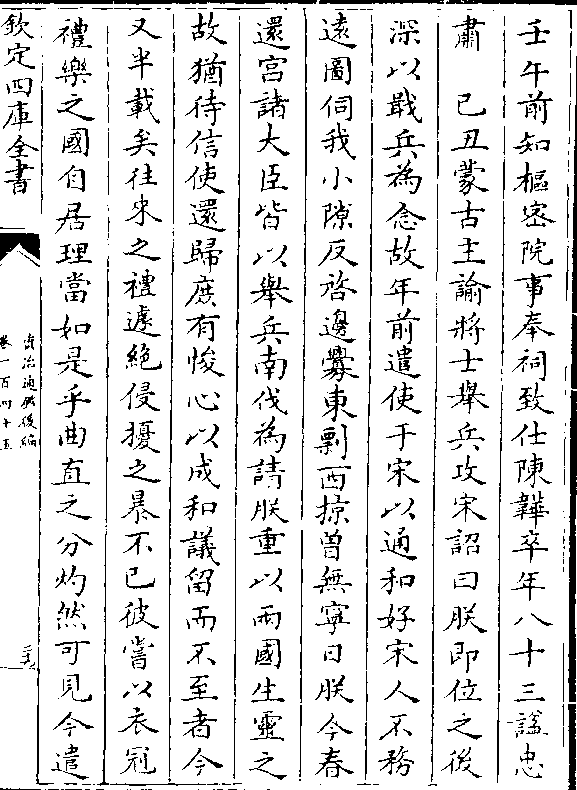 壬午前知樞密院事奉祠致仕陳韡卒年八十三諡忠
肅　己丑蒙古主諭將士舉兵攻宋詔曰朕即位之後
深以戢兵為念故年前遣使于宋以通和好宋人不務
逺圖伺我小隙反啓邊釁東剽西掠曽無寧日朕今春
還宫諸大臣皆以舉兵南伐為請朕重以兩國生靈之
故猶待信使還歸庶有悛心以成和議留而不至者今
又半載矣往来之禮遽絶侵擾之暴不已彼嘗以衣冠
禮樂之國自居理當如是乎曲直之分灼然可見今遣
欽定四庫全書
資治通鑑後編
卷一百四十五